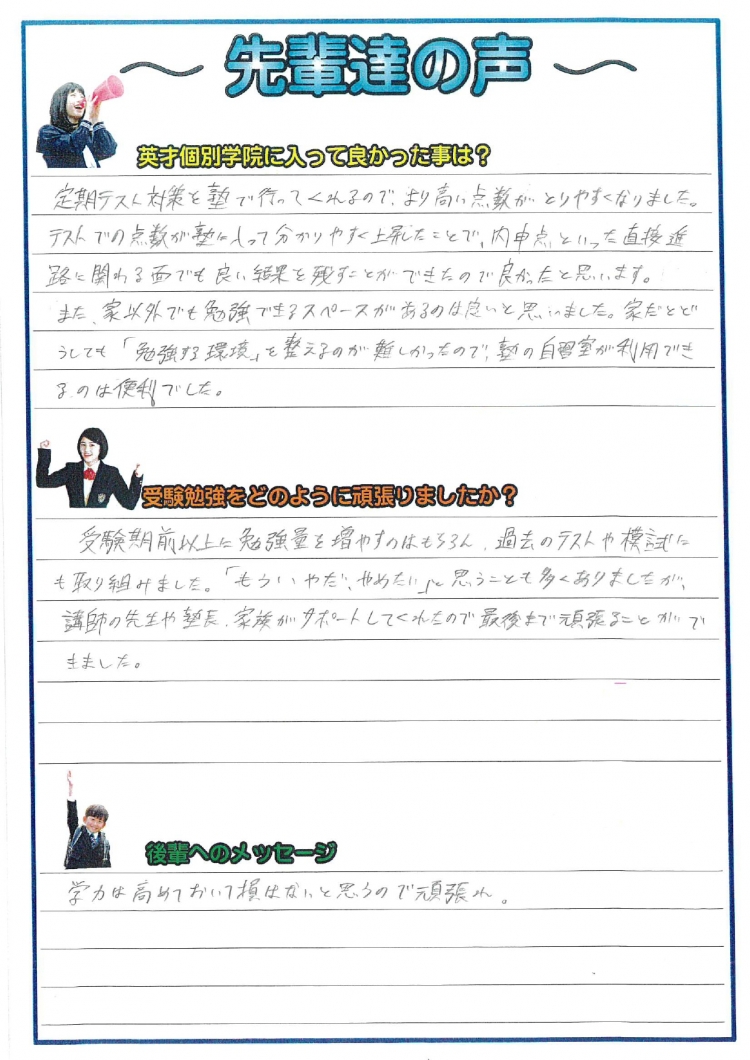 〜 先輩達の声 〜
英才個別学院に入って良かった事は？
定期テスト対策を塾で行ってくれるので、より高い点数がとりやすくなりました。
テストでの点数が塾に入って分かりやすく上昇したことで、内申点といった直接進
路に関わる面でも良い結果を残すことができたので良かったと思います。
また、家以外でも勉強できるスペースがあるのは良いと思いました。家だとど
うしても「勉強する環境」を整えるのが難しかったので、塾の自習室が利用でき
るのは便利でした。
受験勉強をどのように頑張りましたか？
受験期前以上に勉強量を増やすのはもちろん、過去のテストや模試に
も取り組みました。「もういやだ、やめたい」と思うことも多くありましたが、
講師の先生や塾長、家族がサポートしてくれたので最後まで頑張ることがで
きました。
後輩へのメッセージ
学力は高めておいて損はないと思うので頑張れ。